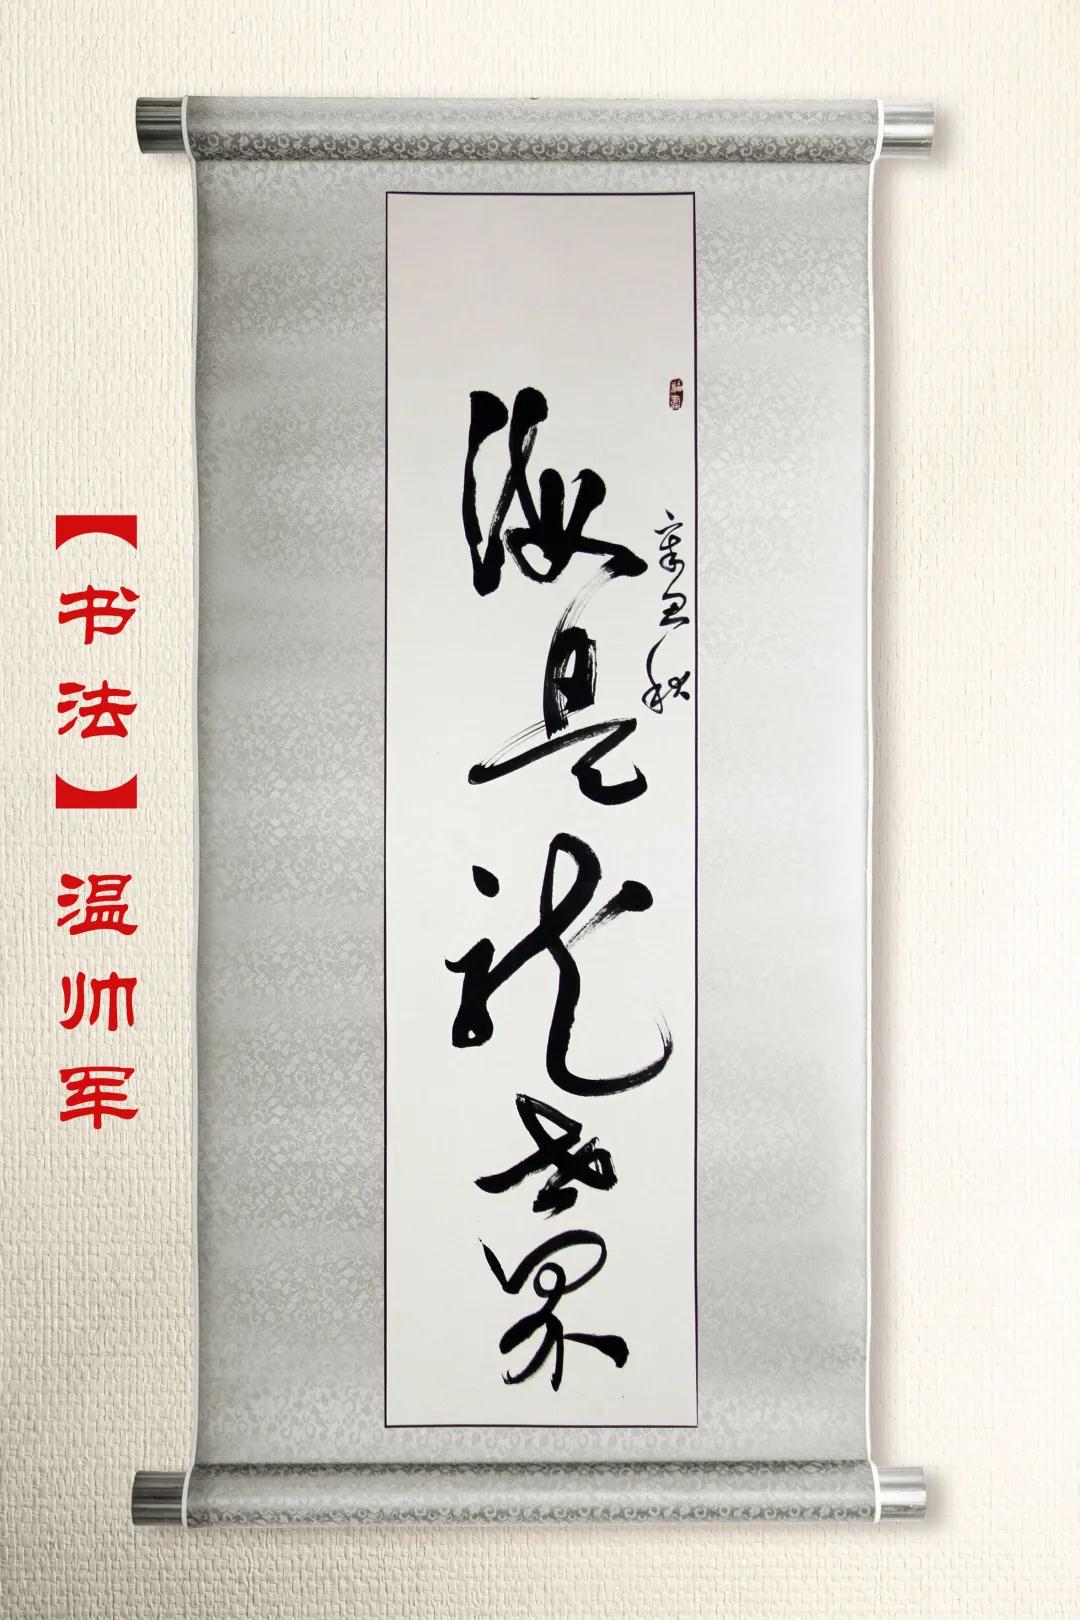 辛丑秋
海是龍世界
【书法】温帅军